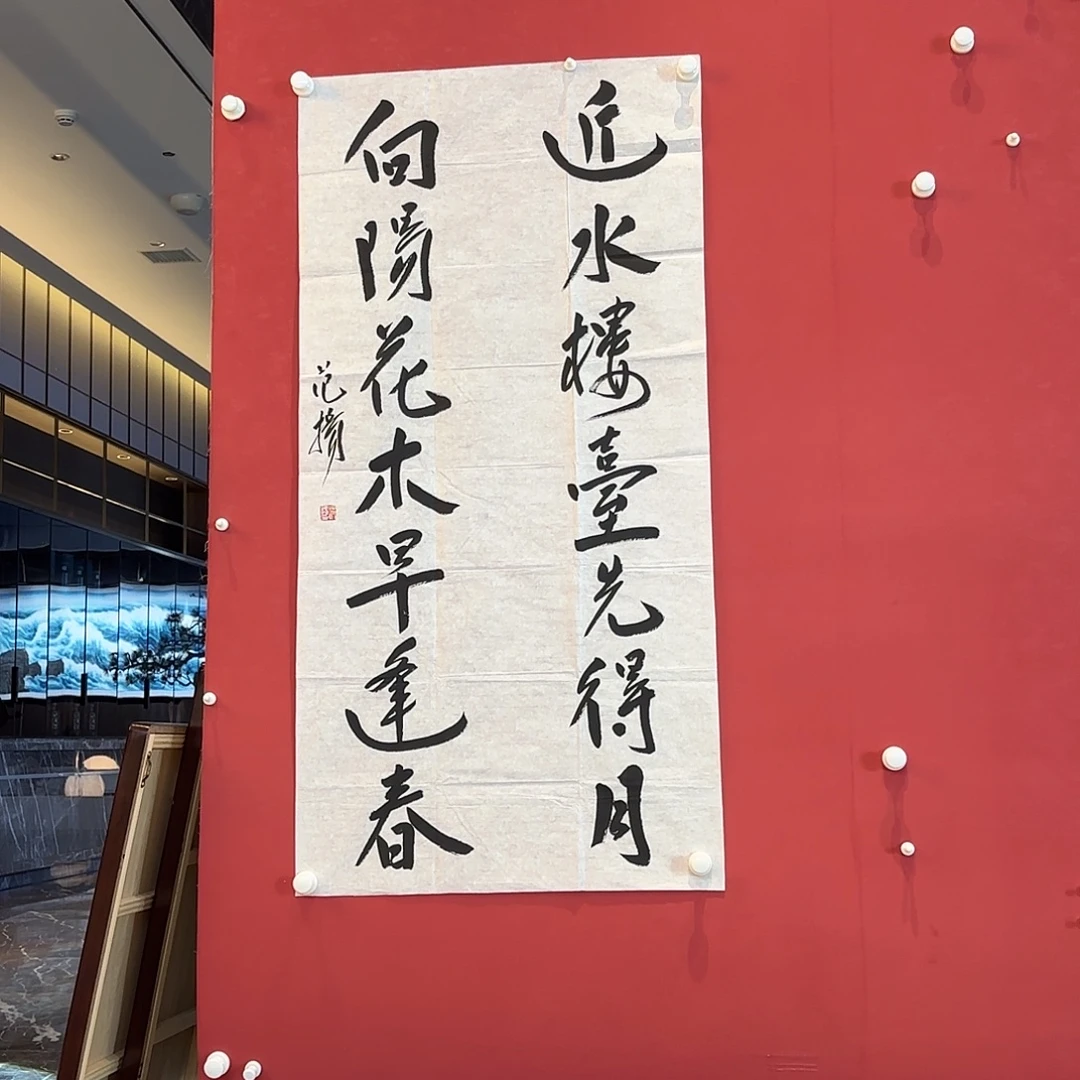 近水樓臺先得月
向陽花木早逢春
范